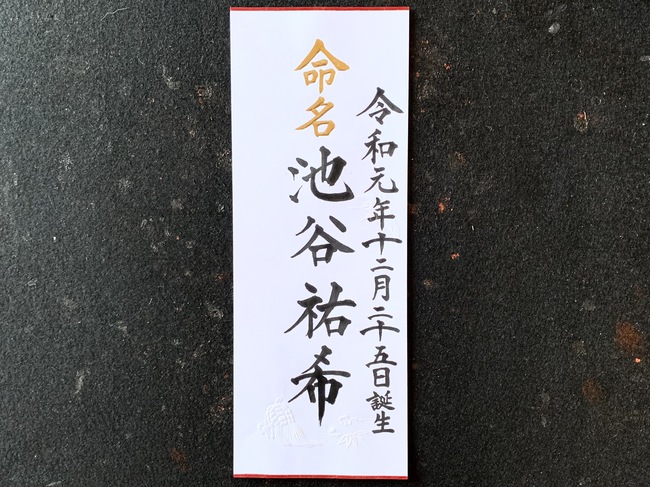 令和元年十二月二十五日誕生
命名 池谷祐希